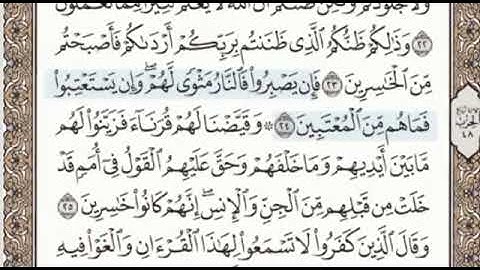 وَلَا جُلُودُكُمْ وَلَٰكِن ظَنَنتُمْ أَنَّ ٱللَّهَ لَا يَعْلَمُ كَثِيرًا مِّمَّا تَعْمَلُونَ
٢٢ وَذَٰلِكُمْ ظَنُّكُمُ ٱلَّذِى ظَنَنتُم بِرَبِّكُمْ أَرْدَىٰكُمْ فَأَصْبَحْتُم
مِّنَ ٱلْخَٰسِرِينَ ٢٣ فَإِن يَصْبِرُوا۟ فَٱلنَّارُ مَثْوًى لَّهُمْ ۖ وَإِن يَسْتَعْتِبُوا۟
فَمَا هُم مِّنَ ٱلْمُعْتَبِينَ ٢٤ ۞ وَقَيَّضْنَا لَهُمْ قُرَنَآءَ فَزَيَّنُوا۟ لَهُم
مَّا بَيْنَ أَيْدِيهِمْ وَمَا خَلْفَهُمْ وَحَقَّ عَلَيْهِمُ ٱلْقَوْلُ فِىٓ أُمَمٍ قَدْ
خَلَتْ مِن قَبْلِهِم مِّنَ ٱلْجِنِّ وَٱلْإِنسِ ۖ إِنَّهُمْ كَانُوا۟ خَٰسِرِينَ ٢٥
وَقَالَ ٱلَّذِينَ كَفَرُوا۟ لَا تَسْمَعُوا۟ لِهَٰذَا ٱلْقُرْءَانِ وَٱلْغَوْا۟ فِيهِ
الحزب
٤٨